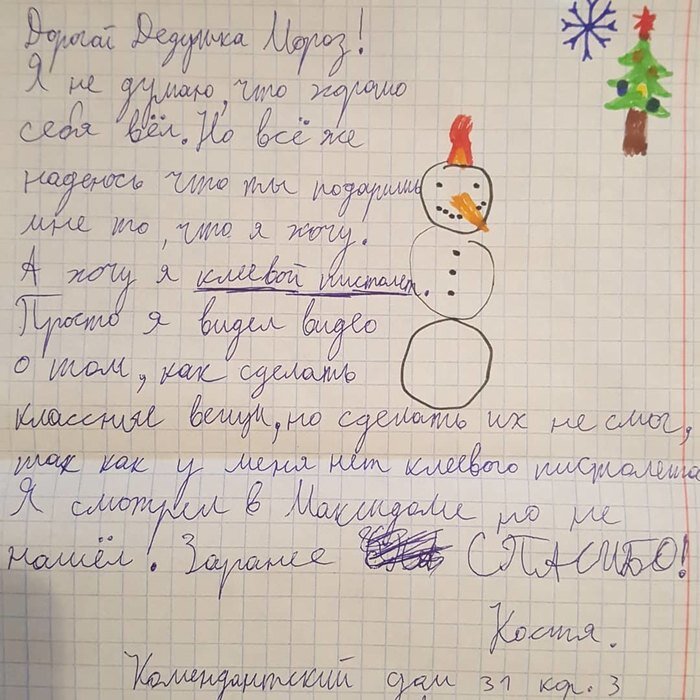 Дорогай Дедушка Мороз!
Я не думаю, что хорошо
себя вёл. Но всё же
надеюсь что ты подаришь
мне то, что я хочу.
А хочу я клеевой пистолет.
Просто я видел видео
о том, как сделать
классные вещи, но сделать их не смог,
так как у меня нет клеевого пистолета
Я смотрел в Максидоме но не
нашёл! Заранее СПАСИБО!
Костя.
Комендантский дом 31 кор. 3